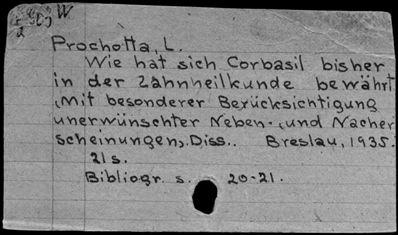 W
Prochotta, L.
Wie hat sich Corbasil bisher
in der Zahnheilkunde bewährt
(Mit besonderer Berücksichtigung
unerwünschter Neben-, und Nacher
scheinungen). Diss.. Breslau, 1935.
21 s.
Bibliogr. s. 20-21.